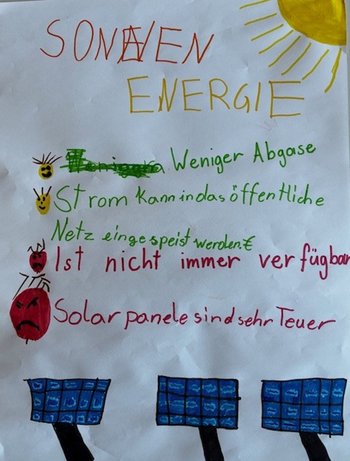 SONNEN
ENERGIE
Weniger Abgase
Strom kann in das öffentliche
Netz eingespeist werden.€
Ist nicht immer verfügbar
Solarpanele sind sehr Teuer